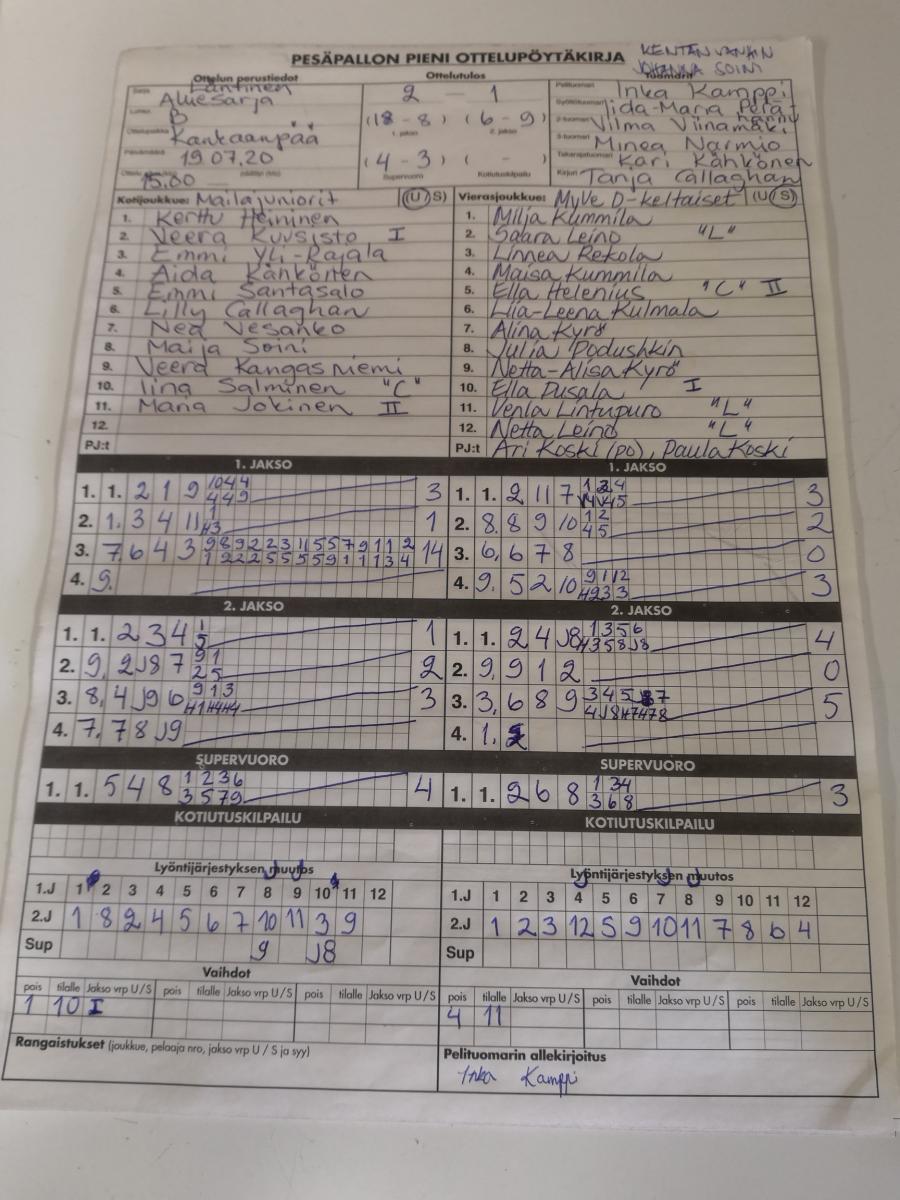 PESÄPALLON PIENI OTTELUPÖYTÄKIRJA
KENTÄN VANHIN
JOHANNA SOINI
Ottelun perustiedot
Ottelutulos
Tuomarit
Sarja Läntinen
Aluesarja
Lohko B
Ottelupaikka Kankaanpää
Päivämäärä 19.07.20
15.00
2 — 1
(18 - 8) (6 - 9)
1. jakso 2. jakso
(4 - 3) ( - )
Supervuoro Kotiutuskilpailu
Pelituomari Inka Kamppi
Syöttötuomari Iida-Maria Perä-
hannu
2-tuomari Vilma Viinamäki
3-tuomari Minea Narmio
Takarajatuomari Kari Kähkönen
Kirjuri Tanja Callaghan
Kotijoukkue: Mailajuniorit (U S)
1. Kerttu Heininen
2. Veera Kuusisto I
3. Emmi Yli-Rajala
4. Aida Kähkönen
5. Emmi Santasalo
6. Lilly Callaghan
7. Nea Vesanko
8. Maija Soini
9. Veera Kangasniemi
10. Iina Salminen "C"
11. Maria Jokinen II
12.
PJ:t
Vierasjoukkue: MyVe D-keltaiset (U S)
1. Milja Kummila
2. Saara Leino "L"
3. Linnea Rekola
4. Maisa Kummila
5. Ella Helenius "C" II
6. Lia-Leena Kulmala
7. Alina Kyrö
8. Julia Podushkin
9. Netta-Alisa Kyrö
10. Ella Pusala I
11. Venla Lintupuro "L"
12. Netta Leino "L"
PJ:t Ari Koski (po), Paula Koski
1. JAKSO
1. 1. 2 1 9 10 4 4
4 4 9
3
2. 1. 3 4 11 1
H3
1
3. 7. 6 4 3 9 8 9 2 2 3 11 5 5 7 9 11 1 2
1 2 2 2 5 5 5 5 9 1 1 1 3 4
14
4. 9.
1. JAKSO
1. 1. 2 11 7
3
2. 8. 8 9 10 1 2
4 5
2
3. 6. 6 7 8 0
4. 9. 5 2 10 9 11 12
H9 3 3
3
2. JAKSO
1. 1. 2 3 4 1
5
1
2. 9. 2 J8 7 9 1
2 5
2
3. 8. 4 J9 6 9 1 3
H1 H4 H4
3
4. 7. 7 8 J9
2. JAKSO
1. 1. 2 4 J8 1 3 5 6
H3 5 8 J8
4
2. 9. 9 1 2 0
3. 3. 6 8 9 3 4 5 7
4 J8 H7 H7 8
5
4. 1.
SUPERVUORO
1. 1. 5 4 8 1 2 3 6
3 5 7 9
4
SUPERVUORO
1. 1. 2 6 8 1 3 4
3 6 8
3
KOTIUTUSKILPAILU
KOTIUTUSKILPAILU
Lyöntijärjestyksen muutos
1.J 1 2 3 4 5 6 7 8 9 10 11 12
2.J 1 8 2 4 5 6 7 10 11 3 9
Sup 9 J8
Lyöntijärjestyksen muutos
1.J 1 2 3 4 5 6 7 8 9 10 11 12
2.J 1 2 3 12 5 9 10 11 7 8 6 4
Sup
Vaihdot
pois tilalle Jakso vrp U / S pois tilalle Jakso vrp U / S pois tilalle Jakso vrp U / S
1 10 I
Vaihdot
pois tilalle Jakso vrp U / S pois tilalle Jakso vrp U / S pois tilalle Jakso vrp U / S
4 11
Rangaistukset (joukkue, pelaaja nro, jakso vrp U / S ja syy)
Pelituomarin allekirjoitus
Inka Kamppi